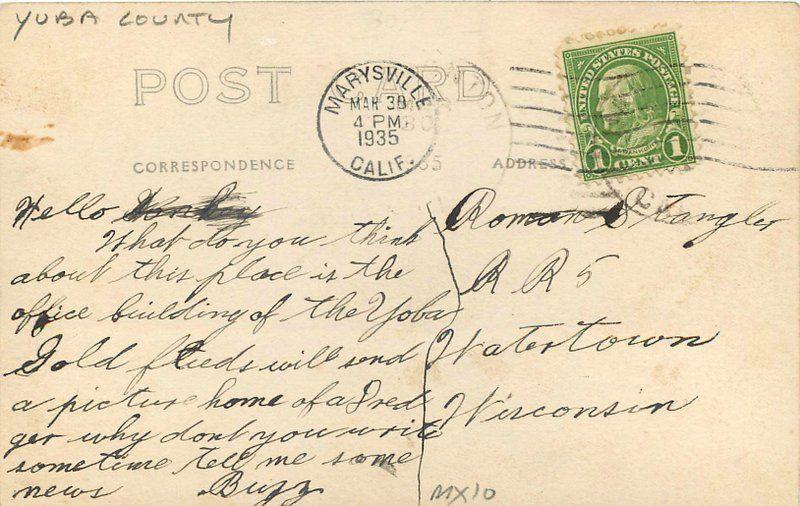 YUBA COUNTY
POST CARD
MARYSVILLE
MAR 30
4 PM
1935
CALIF.
UNITED STATES POSTAGE
1 CENT 1
CORRESPONDENCE
ADDRESS
Hello
What do you think
about this place is the
office building of the Yoba
Gold fleids will send
a picture home of a Dred
ger why dont you write
sometime tell me some
news Buzz
Roman Stangler
R R 5
Watertown
Wisconsin
MX10